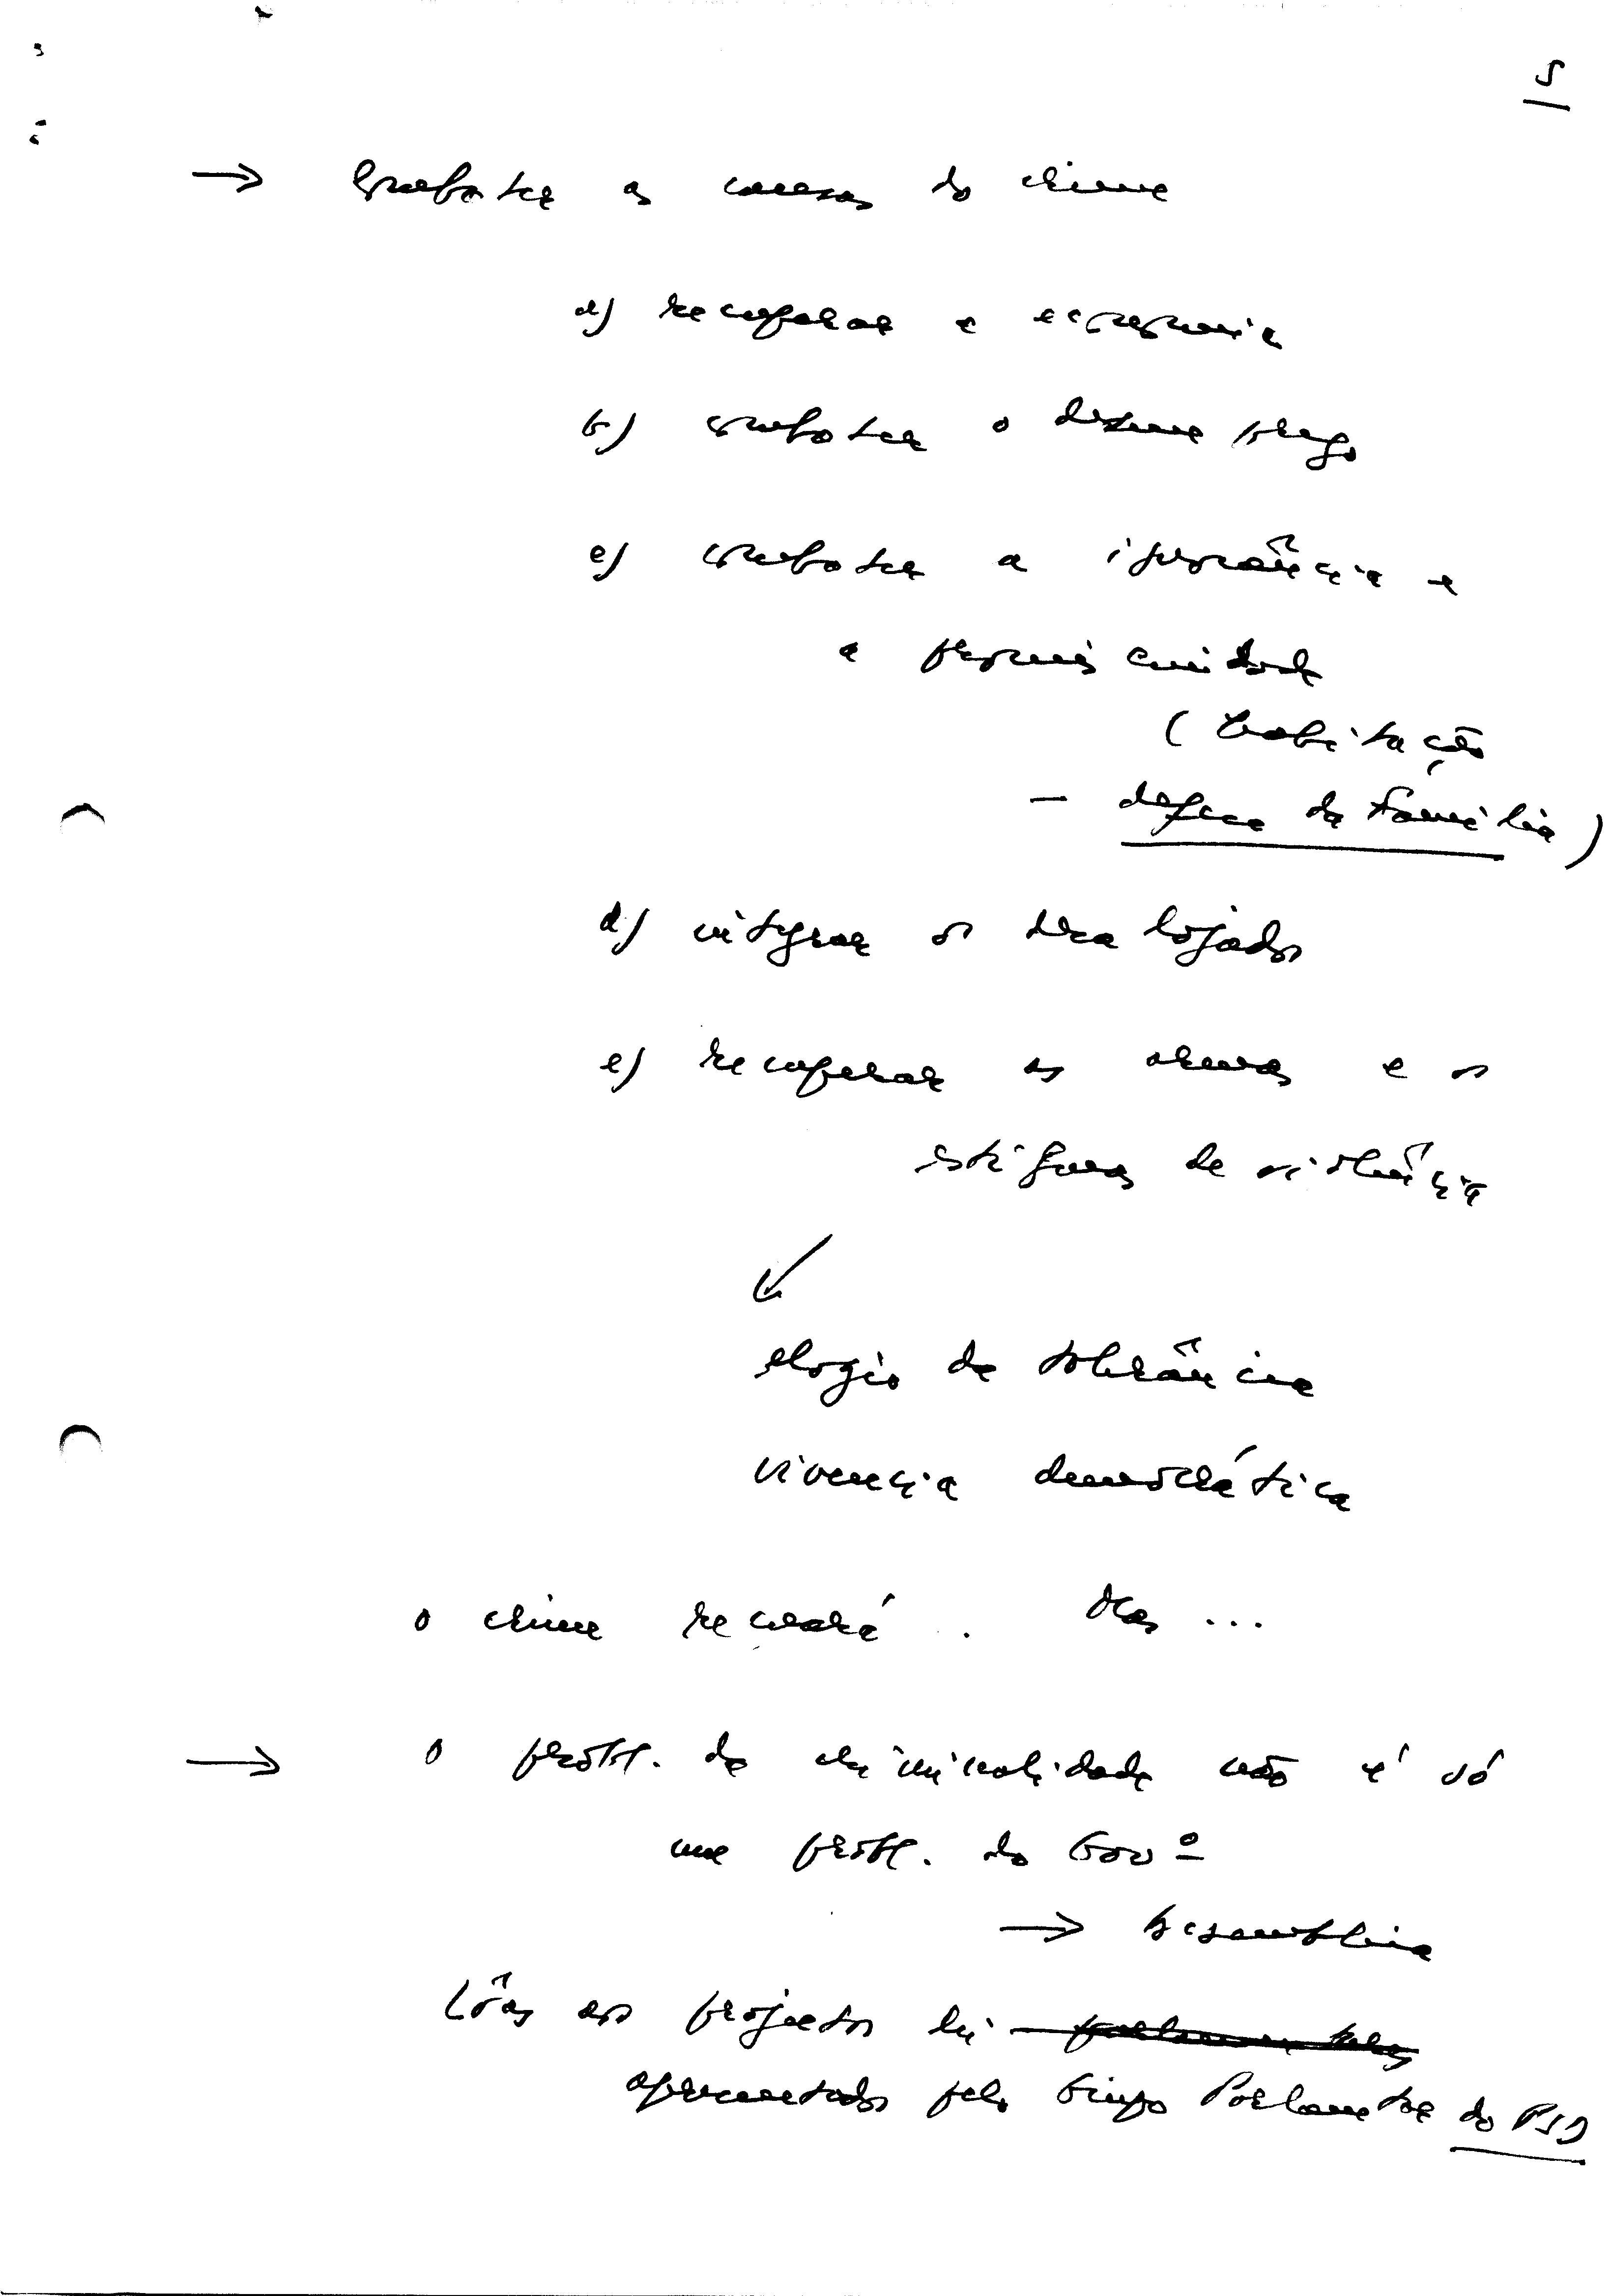 5
→ Combater as causas do crime
a) recuperar a economia
b) combater o desemprego
c) combater a ignorância e
a promiscuidade
( habitação
— defesa da Família )
d) integrar os desalojados
e) recuperar as armas e os
estigmas de violência
↙
elogio da tolerância
vivencia democrática
o crime recuará . Mas ...
→ o probl. da criminalidade não é só
um probl. do Govº
→ Assembleia
aos projectos lei
apresentados pelo Grupo Parlamentar do PSD